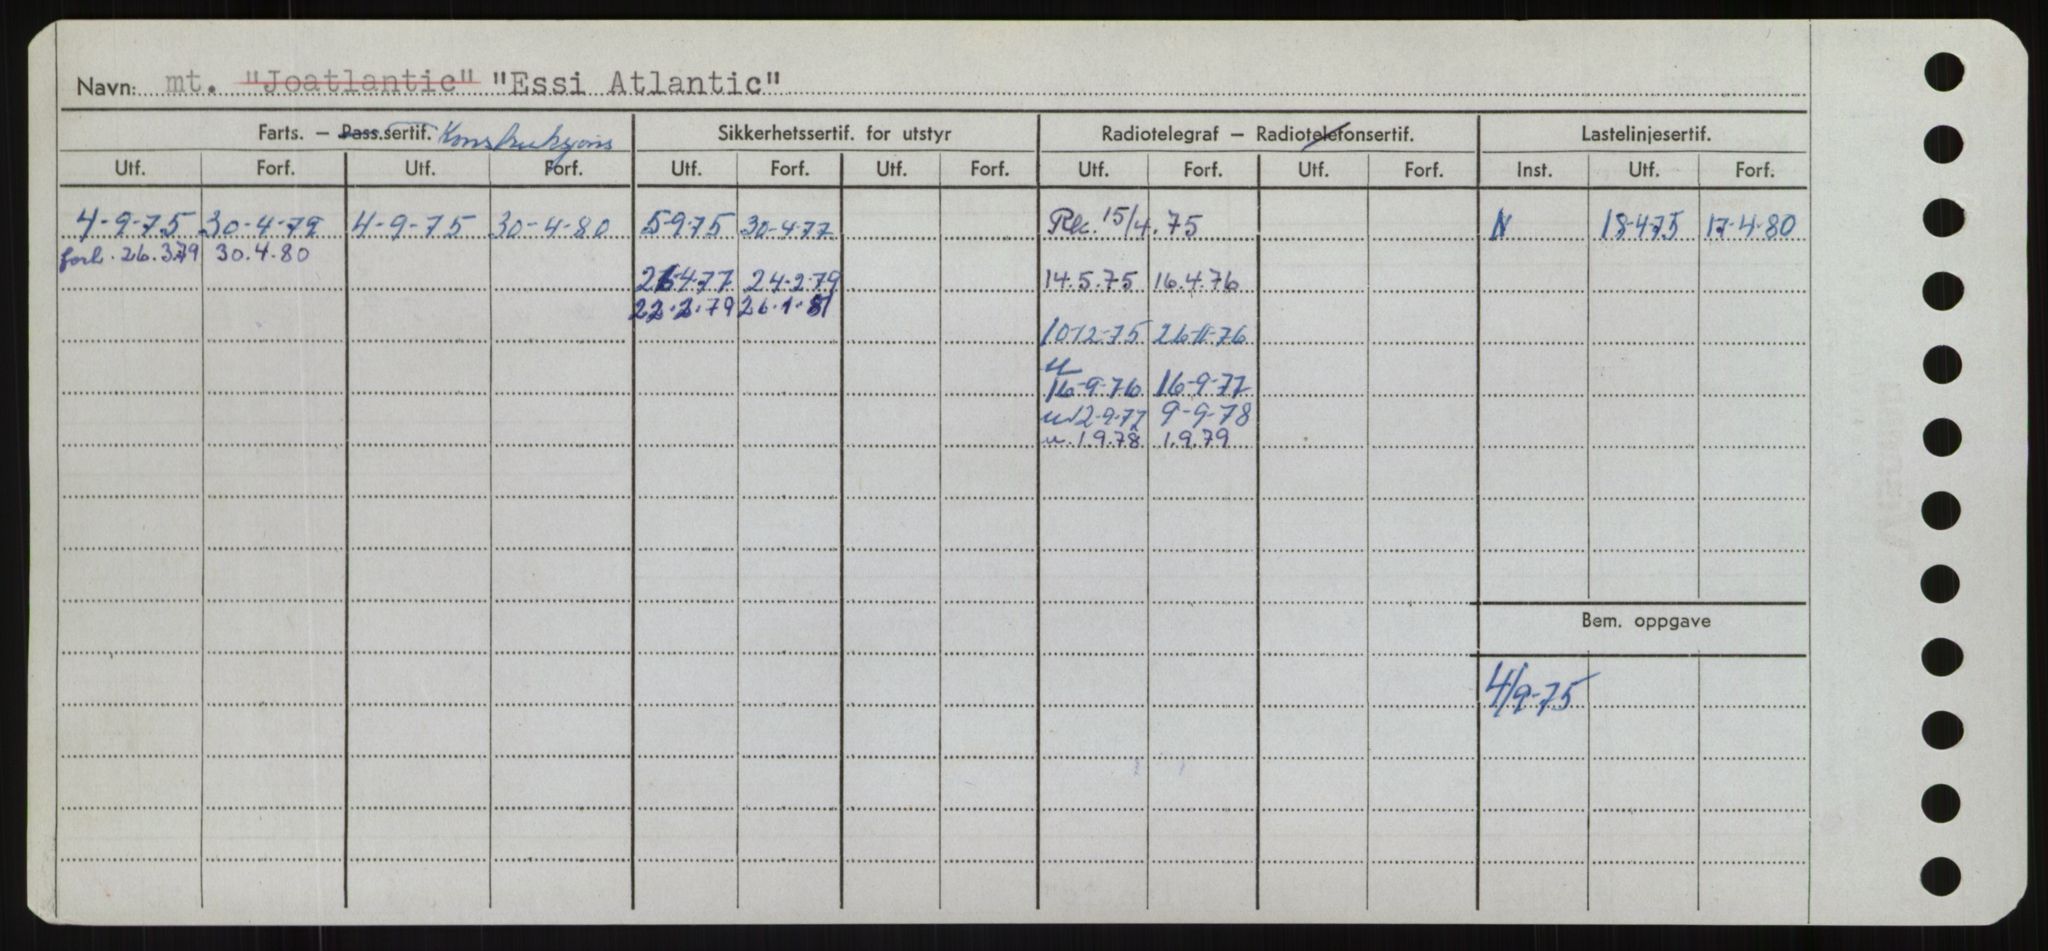 Navn: mt. "Joatlantic" "Essi Atlantic"
Farts. – Pass.sertif. Konstruksjons Sikkerhetssertif. for utstyr Radiotelegraf – Radiotelefonsertif. Lastelinjesertif.
Utf. Forf. Utf. Forf. Utf. Forf. Utf. Forf. Utf. Forf. Utf. Forf. Inst. Utf. Forf.
4-9-75 30-4-79 4-9-75 30-4-80 5-9-75 30-4-77 Rec. 15/4.75 N 18-4-75 17-4-80
forl. 26.3.79 30.4.80
26-4-77 24-2-79 14.5.75 16.4.76
22.2.79 26.1.81
10-12-75 26-11-76
u
16-9-76 16-9-77
u.12-9-77 9-9-78
u. 1.9.78 1.9.79
Bem. oppgave
4/9-75